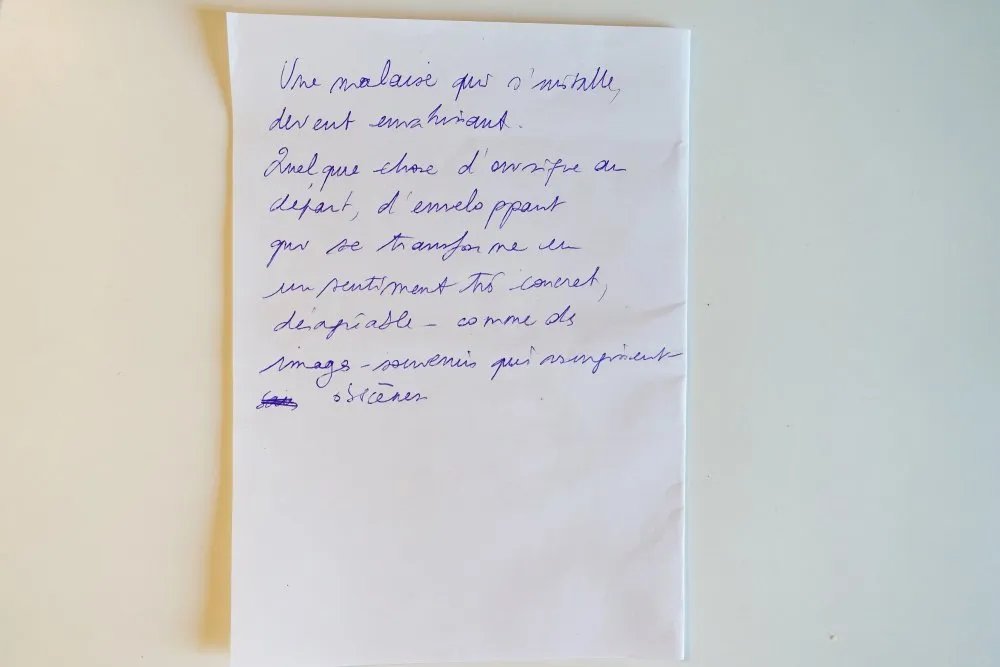 Une malaise qui s'installe,
devient envahissant.
Quelque chose d' au
départ, d'enveloppant
qui se transforme en
un sentiment très concret,
désagréable - comme des
images-souvenirs qui surgissent
obscènes